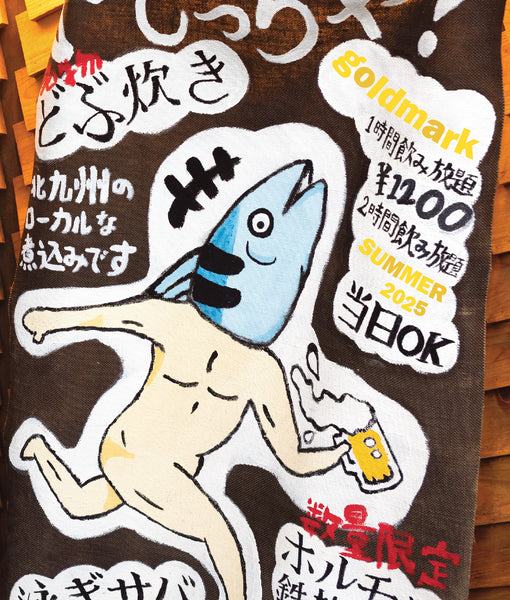 しっちゃ!
どぶ炊き
北九州の
ローカルな
煮込みです
goldmark
1時間飲み放題
¥1200
2時間飲み放題
SUMMER
2025
当日OK
数量限定
ホルモン
泳ぎサバ